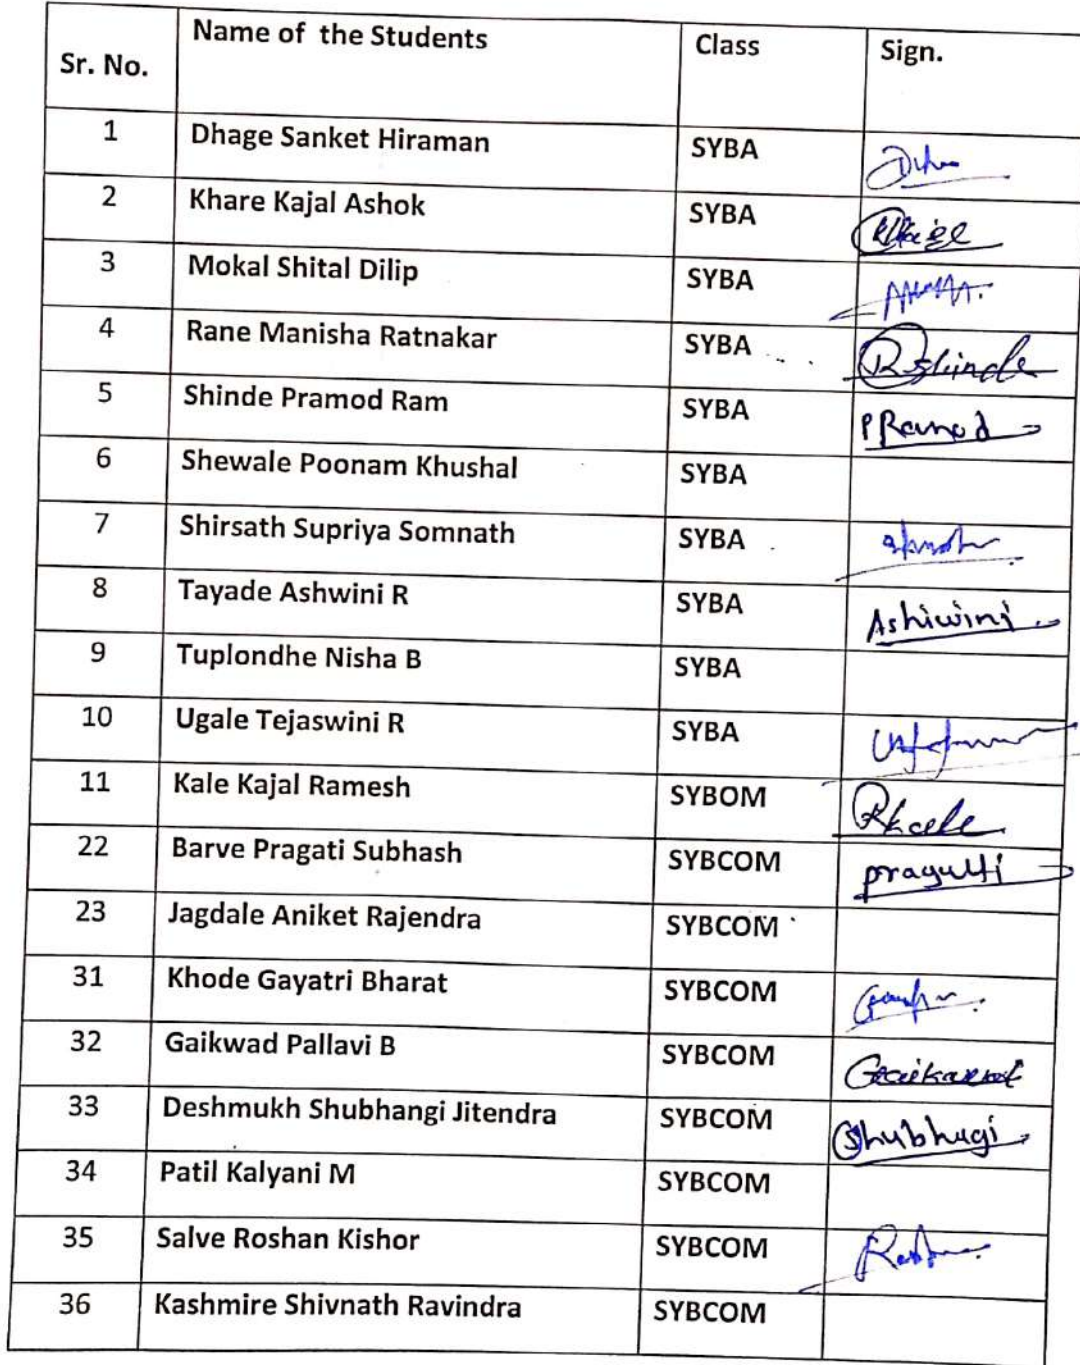 Sr. No. Name of the Students Class Sign.
1 Dhage Sanket Hiraman SYBA
2 Khare Kajal Ashok SYBA
3 Mokal Shital Dilip SYBA
4 Rane Manisha Ratnakar SYBA Rshinde
5 Shinde Pramod Ram SYBA PRamod
6 Shewale Poonam Khushal SYBA
7 Shirsath Supriya Somnath SYBA
8 Tayade Ashwini R SYBA Ashiwini
9 Tuplondhe Nisha B SYBA
10 Ugale Tejaswini R SYBA
11 Kale Kajal Ramesh SYBOM Rkale
22 Barve Pragati Subhash SYBCOM
23 Jagdale Aniket Rajendra SYBCOM
31 Khode Gayatri Bharat SYBCOM
32 Gaikwad Pallavi B SYBCOM
33 Deshmukh Shubhangi Jitendra SYBCOM Shubhagi
34 Patil Kalyani M SYBCOM
35 Salve Roshan Kishor SYBCOM
36 Kashmire Shivnath Ravindra SYBCOM